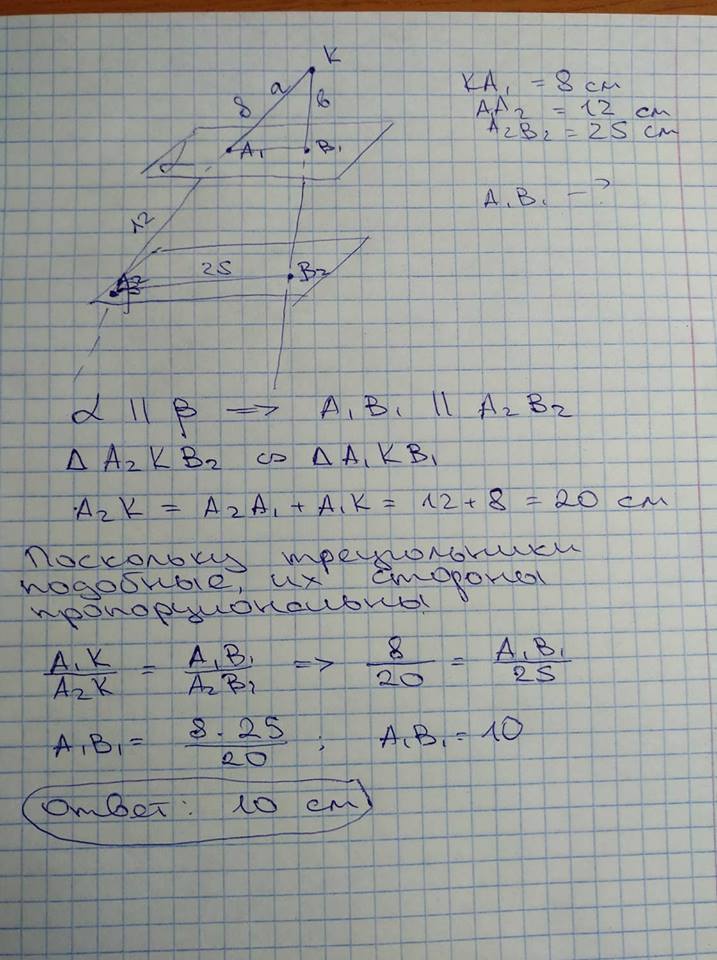 K
a
8
в
α
A₁
B₁
12
25
A₂
β
B₂
KA₁ = 8 см
AA₂ = 12 см
A₂B₂ = 25 см
A₁B₁ - ?
α || β => A₁B₁ || A₂B₂
Δ A₂KB₂ ∽ ΔA₁KB₁
A₂K = A₂A₁ + A₁K = 12 + 8 = 20 см
Поскольку треугольники
подобные, их стороны
пропорциональны
A₁K/A₂K = A₁B₁/A₂B₂ => 8/20 = A₁B₁/25
A₁B₁ = 8 · 25/20 ; A₁B₁ = 10
Ответ: 10 см